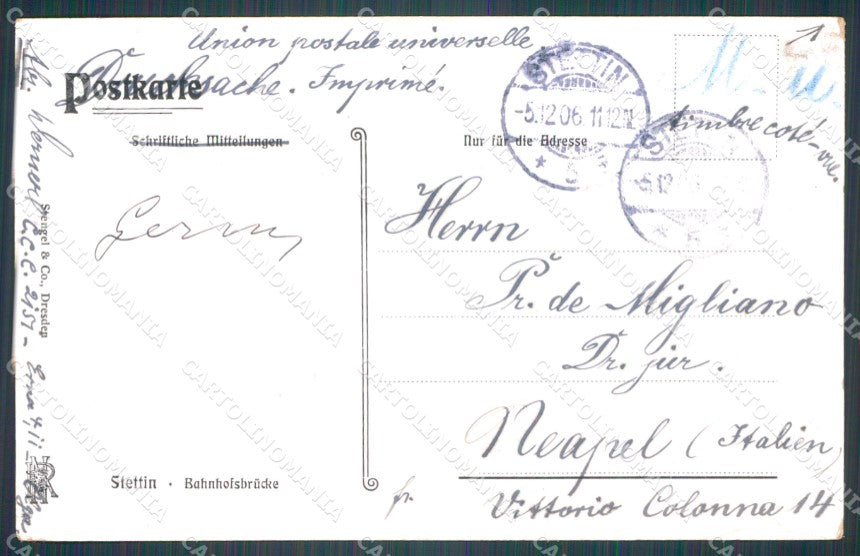 Union postale universelle.
Drucksache. Imprimé.
Postkarte
Schriftliche Mitteilungen
Nur für die Adresse
STETTIN
-5.12.06.11-12N
timbre coté-vue.
1
Herrn
Pr. de Migliano
Dr. jur.
Neapel (Italien)
Vittorio Colonna 14
fr.
Stettin · Bahnhofsbrücke
Stengel & Co., Dresden
Abs. Werner
CARTOLINOMANIA